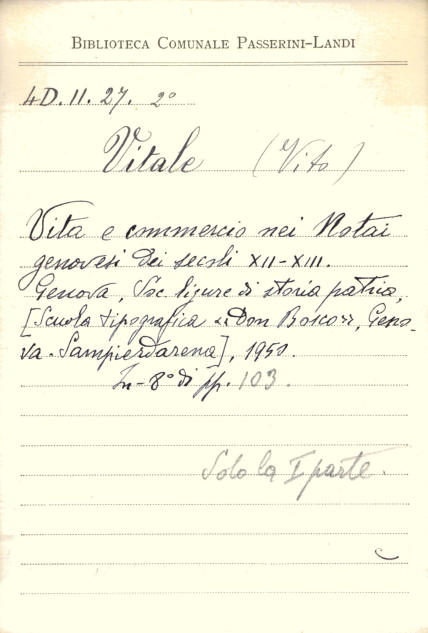 BIBLIOTECA COMUNALE PASSERINI-LANDI
4D.II.27. 2°
Vitale (Vito)
Vita e commercio nei Notai
genovesi dei secoli XII-XIII.
Genova, Soc. ligure di storia patria,
[Scuola tipografica "Don Bosco", Geno-
va-Sampierdarena], 1950.
In-8° di pp. 103.
Solo la I parte.